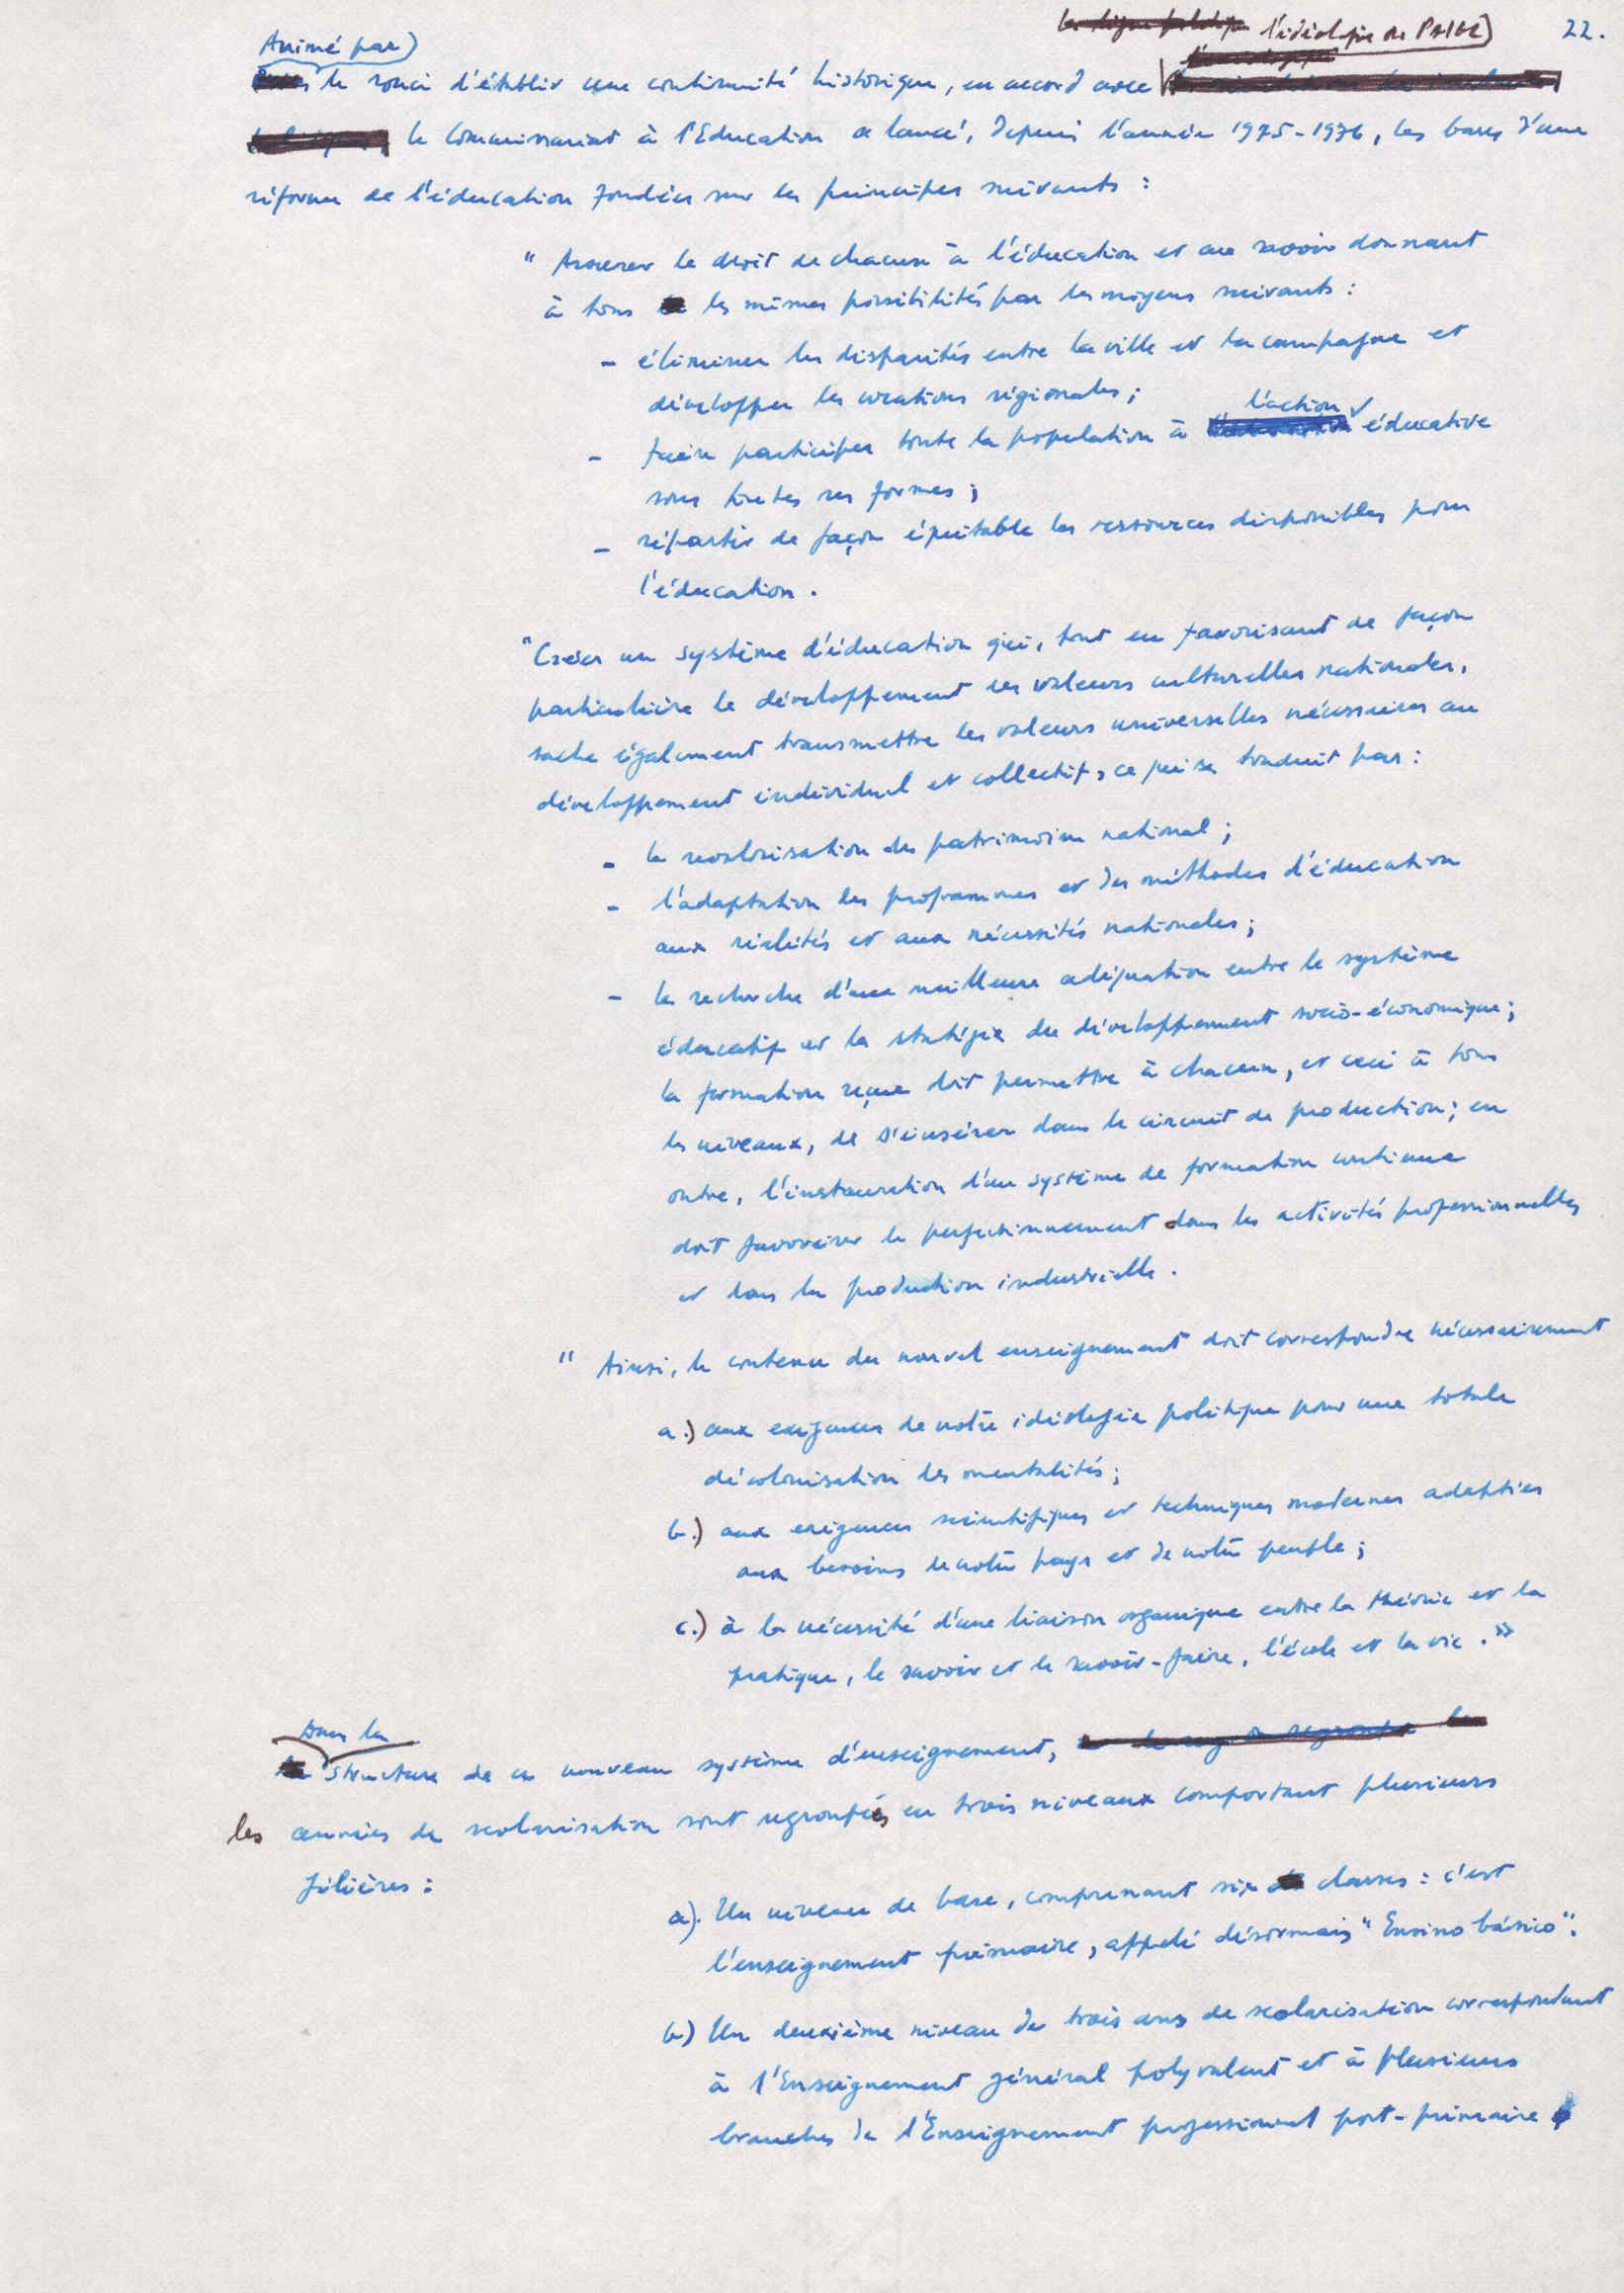 22.
l'idéologie du PAIGC
Animé par
le souci d'établir une continuité historique, en accord avec
le Commissariat à l'Education a lancé, depuis l'année 1975-1976, les bases d'une
réforme de l'éducation fondée sur les principes suivants :
" Assurer le droit de chacun à l'éducation et au savoir donnant
à tous les mêmes possibilités par les moyens suivants :
- éliminer les disparités entre la ville et la campagne et
développer les vocations régionales ;
l'action
- faire participer toute la population à éducative
sous toutes ses formes ;
- répartir de façon équitable les ressources disponibles pour
l'éducation .
"Créer un système d'éducation qui, tout en favorisant de façon
particulière le développement des valeurs culturelles nationales,
sache également transmettre les valeurs universelles nécessaires au
développement individuel et collectif, ce qui se traduit par :
- la revalorisation du patrimoine national ;
- l'adaptation des programmes et des méthodes d'éducation
aux réalités et aux nécessités nationales ;
- la recherche d'une meilleure adéquation entre le système
éducatif et la stratégie du développement socio-économique ;
la formation reçue doit permettre à chacun, et ceci à tous
les niveaux, de s'insérer dans le circuit de production ; en
outre, l'instauration d'un système de formation continue
doit favoriser le perfectionnement dans les activités professionnelles
et dans la production industrielle .
" Ainsi, le contenu du nouvel enseignement doit correspondre nécessairement
a.) aux exigences de notre idéologie politique pour une totale
décolonisation des mentalités ;
b.) aux exigences scientifiques et techniques modernes adaptées
aux besoins de notre pays et de notre peuple ;
c.) à la nécessité d'une liaison organique entre la théorie et la
pratique, le savoir et le savoir-faire, l'école et la vie . »
Dans la
structure de ce nouveau système d'enseignement,
les années de scolarisation sont regroupées en trois niveaux comportant plusieurs
filières :
a). Un niveau de base, comprenant six classes : c'est
l'enseignement primaire, appelé désormais "Ensino básico".
b) Un deuxième niveau de trois ans de scolarisation correspondant
à l'Enseignement général polyvalent et à plusieurs
branches de l'Enseignement professionnel post-primaire